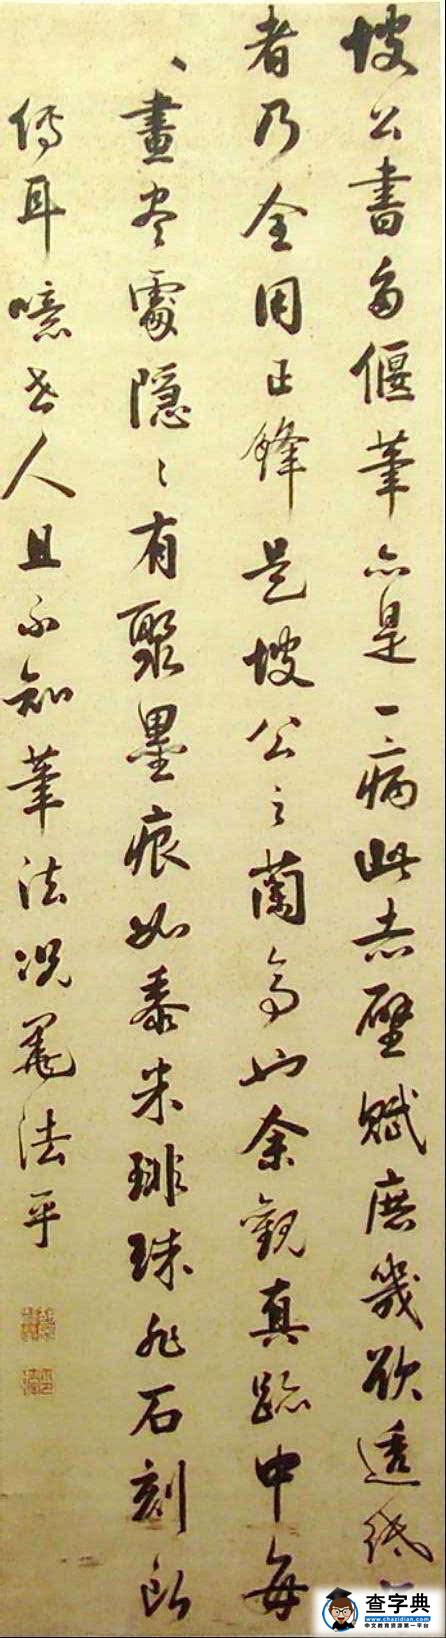 坡公書多偃筆亦是一病此赤壁賦庶幾欲透紙
者乃全用正鋒是坡公之蘭亭也余觀真跡中每
々畫盡處隱々有聚墨痕如黍米琲珠非石刻所
傳耳噫世人且不知筆法況墨法乎
查字典
www.chazidian.com
中文教育资源第一平台